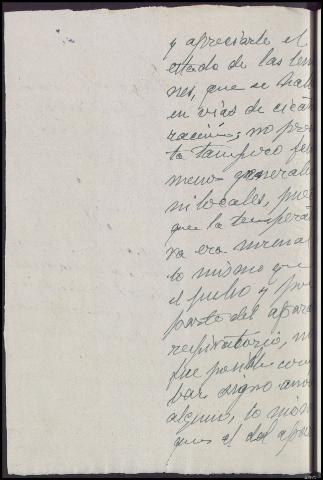 y apreciarle el
estado de las lesio
nes, que se hall
en vias de cicat
ración, no pres
ta tampoco fen
meno generale
ni locales, pues
que la temperat
ra era normal
lo mismo que
el pulso y por
parte del apara
respiratorio, no
fue posible com
bar signo anor
alguno, lo mism
que el del apara